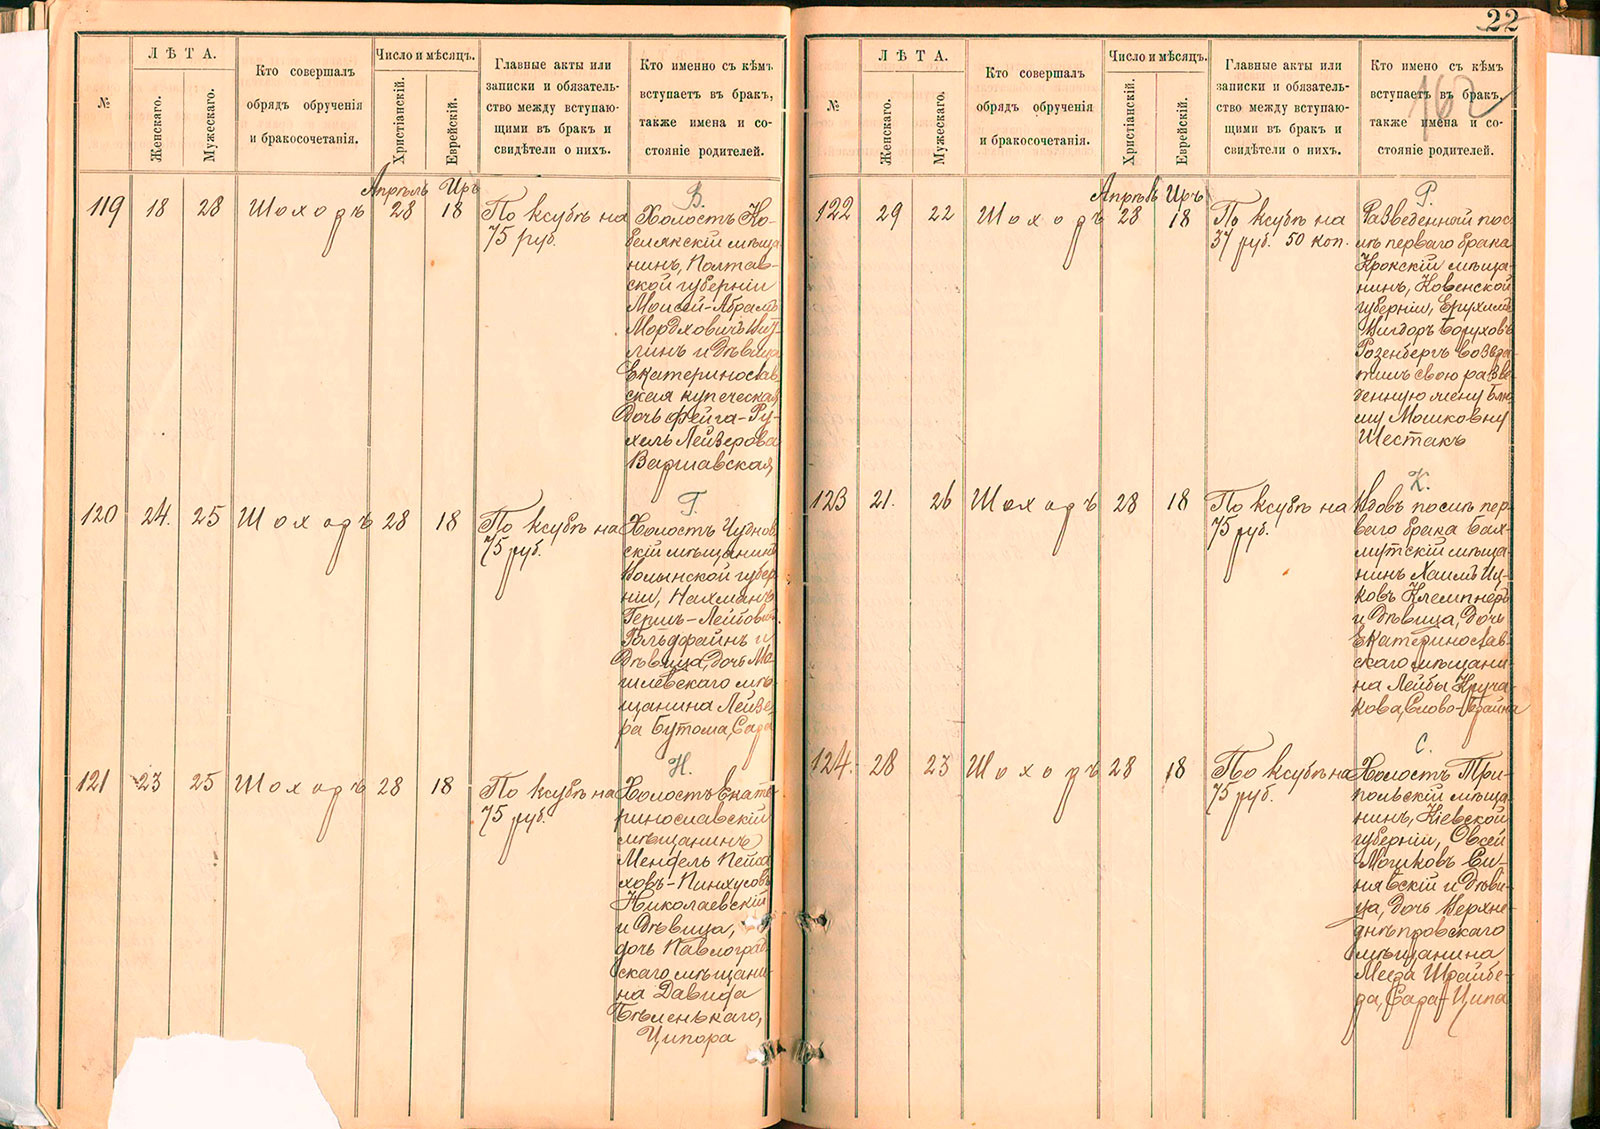 22
160
№
ЛѢТА.
Женскаго.
Мужескаго.
Кто совершалъ
обрядъ обрученія
и бракосочетанія.
Число и мѣсяцъ.
Христіанскій.
Еврейскій.
Главные акты или
записки и обязатель-
ство между вступаю-
щими въ бракъ и
свидѣтели о нихъ.
Кто именно съ кѣмъ
вступаетъ въ бракъ,
также имена и со-
стояніе родителей.
Апрѣль Иръ
В.
119 18 28 Шохоръ 28 18 По ксубѣ на
75 руб.
Холостъ Ко-
белякскій мѣща-
нинъ, Полтав-
ской губерніи
Моисей-Абрамъ
Мордховичъ
линъ и дѣвица
Екатеринослав-
ская купеческая
дочь Фейга-Ру-
хиль Лейзерова
Варшавская
Г.
120 24. 25 Шохоръ 28 18 По ксубѣ на
75 руб.
Холостъ Чуднов-
скій мѣщанинъ
Волынской губер-
ніи, Нахманъ
Гершъ-Лейбовъ
Гольдфайнъ и
дѣвица, дочь Мо-
гилевскаго мѣ-
щанина Лейзе-
ра Бутома, Сара
Н.
121 23 25 Шохоръ 28 18 По ксубѣ на
75 руб.
Холостъ Екате-
ринославскій
мѣщанинъ
Мендель Пейса-
ховъ-Пинхусовъ
Николаевскій
и дѣвица,
дочь Павлоград-
скаго мѣщани-
на Давида
Бѣленькаго,
Ципора
№
ЛѢТА.
Женскаго.
Мужескаго.
Кто совершалъ
обрядъ обрученія
и бракосочетанія.
Число и мѣсяцъ.
Христіанскій.
Еврейскій.
Главные акты или
записки и обязатель-
ство между вступаю-
щими въ бракъ и
свидѣтели о нихъ.
Кто имено съ кѣмъ
вступаетъ въ бракъ,
также имена и со-
стояніе родителей.
Апрѣль Иръ
Р.
122 29 22 Шохоръ 28 18 По ксубѣ на
37 руб. 50 коп.
Разведенной пос-
лѣ перваго брака
Крокскій мѣща-
нинъ, Ковенской
губерніи, Ерухимъ
Вигдоръ Боруховъ
Розенбергъ возвра-
тилъ свою разве-
денную жену Блю-
му Мошковну
Шестакъ
К.
123 21. 26 Шохоръ 28 18 По ксубѣ на
75 руб.
Вдовъ послѣ пер-
ваго брака Бах-
мутскій мѣща-
нинъ Хаимъ Иц-
ковъ Клемпнеръ
и дѣвица, дочь
Екатеринослав-
скаго мѣщани-
на Лейбы Круча-
кова, Слово-Фрайна
С.
124. 28 23 Шохоръ 28 18 По ксубѣ на
75 руб.
Холостъ Три-
польскій мѣща-
нинъ, Кіевской
губерніи, Овсей
Мошковъ Си-
нявскій и дѣви-
ца, дочь Верхне-
днѣпровскаго
мѣщанина
Меера Шрайбе-
ра, Сара-Ципа